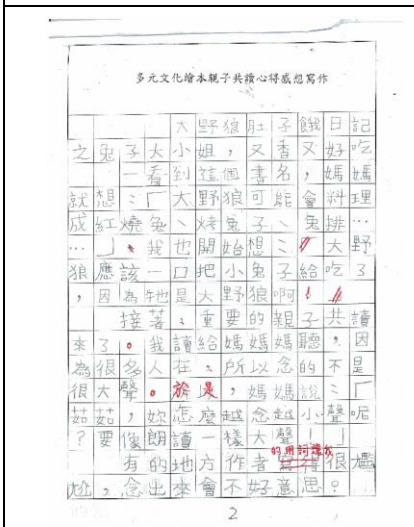 多元文化繪本親子共讀心得感想寫作
大野狼肚子餓日記
之兔子大小姐，又香又好吃
一看到這個書名，媽媽
就想：「大野狼可能會料理
成紅燒兔、烤兔子、兔排…
…」，我也開始想：大野
狼應該一口把小兔子給吃了
，因為牠是大野狼啊！
接著，重要的親子共讀
來了。我讀給媽媽媽聽，因
為很多人在，所以念的不是
很大聲。於是，媽媽說：「
茹茹，妳怎麼越念越小聲呢
？要像朗讀一樣大聲！」
的用詞讓我
有的地方作者寫得很尷
尬，念出來會不好意思？
2